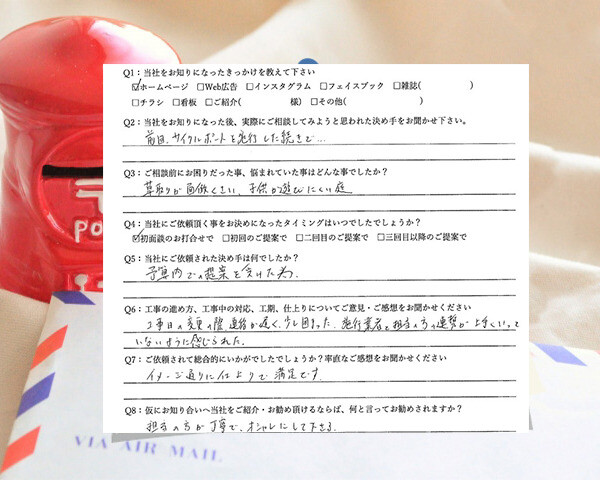 Q1：当社をお知りになったきっかけを教えて下さい
☑ホームページ □Web広告 □インスタグラム □フェイスブック □雑誌( )
□チラシ □看板 □ご紹介( 様) □その他( )
Q2：当社をお知りになった後、実際にご相談してみようと思われた決め手をお聞かせ下さい。
前回、サイクルポートを施行した続きで…
Q3：ご相談前にお困りだった事、悩まれていた事はどんな事でしたか？
草取りが面倒くさい、子供が遊びにくい庭
Q4：当社にご依頼頂く事をお決めになったタイミングはいつでしたでしょうか？
☑初面談のお打合せで □初回のご提案で □二回目のご提案で □三回目以降のご提案で
Q5：当社にご依頼された決め手は何でしたか？
予算内での提案を受けた為.
Q6：工事の進め方、工事中の対応、工期、仕上りについてご意見・ご感想をお聞かせください
工事日の変更の際 連絡が遅く、少し困まった. 施行業者と担当の方の連携が上手くいって
いないように感じられた.
Q7：ご依頼されて総合的にいかがでしたでしょうか？率直なご感想をお聞かせください
イメージ通りに仕上りで 満足です.
Q8：仮にお知り合いへ当社をご紹介・お勧め頂けるならば、何と言ってお勧めされますか？
担当の方が丁寧で、オシャレにして下さる.
PO
VIA AIR MAIL